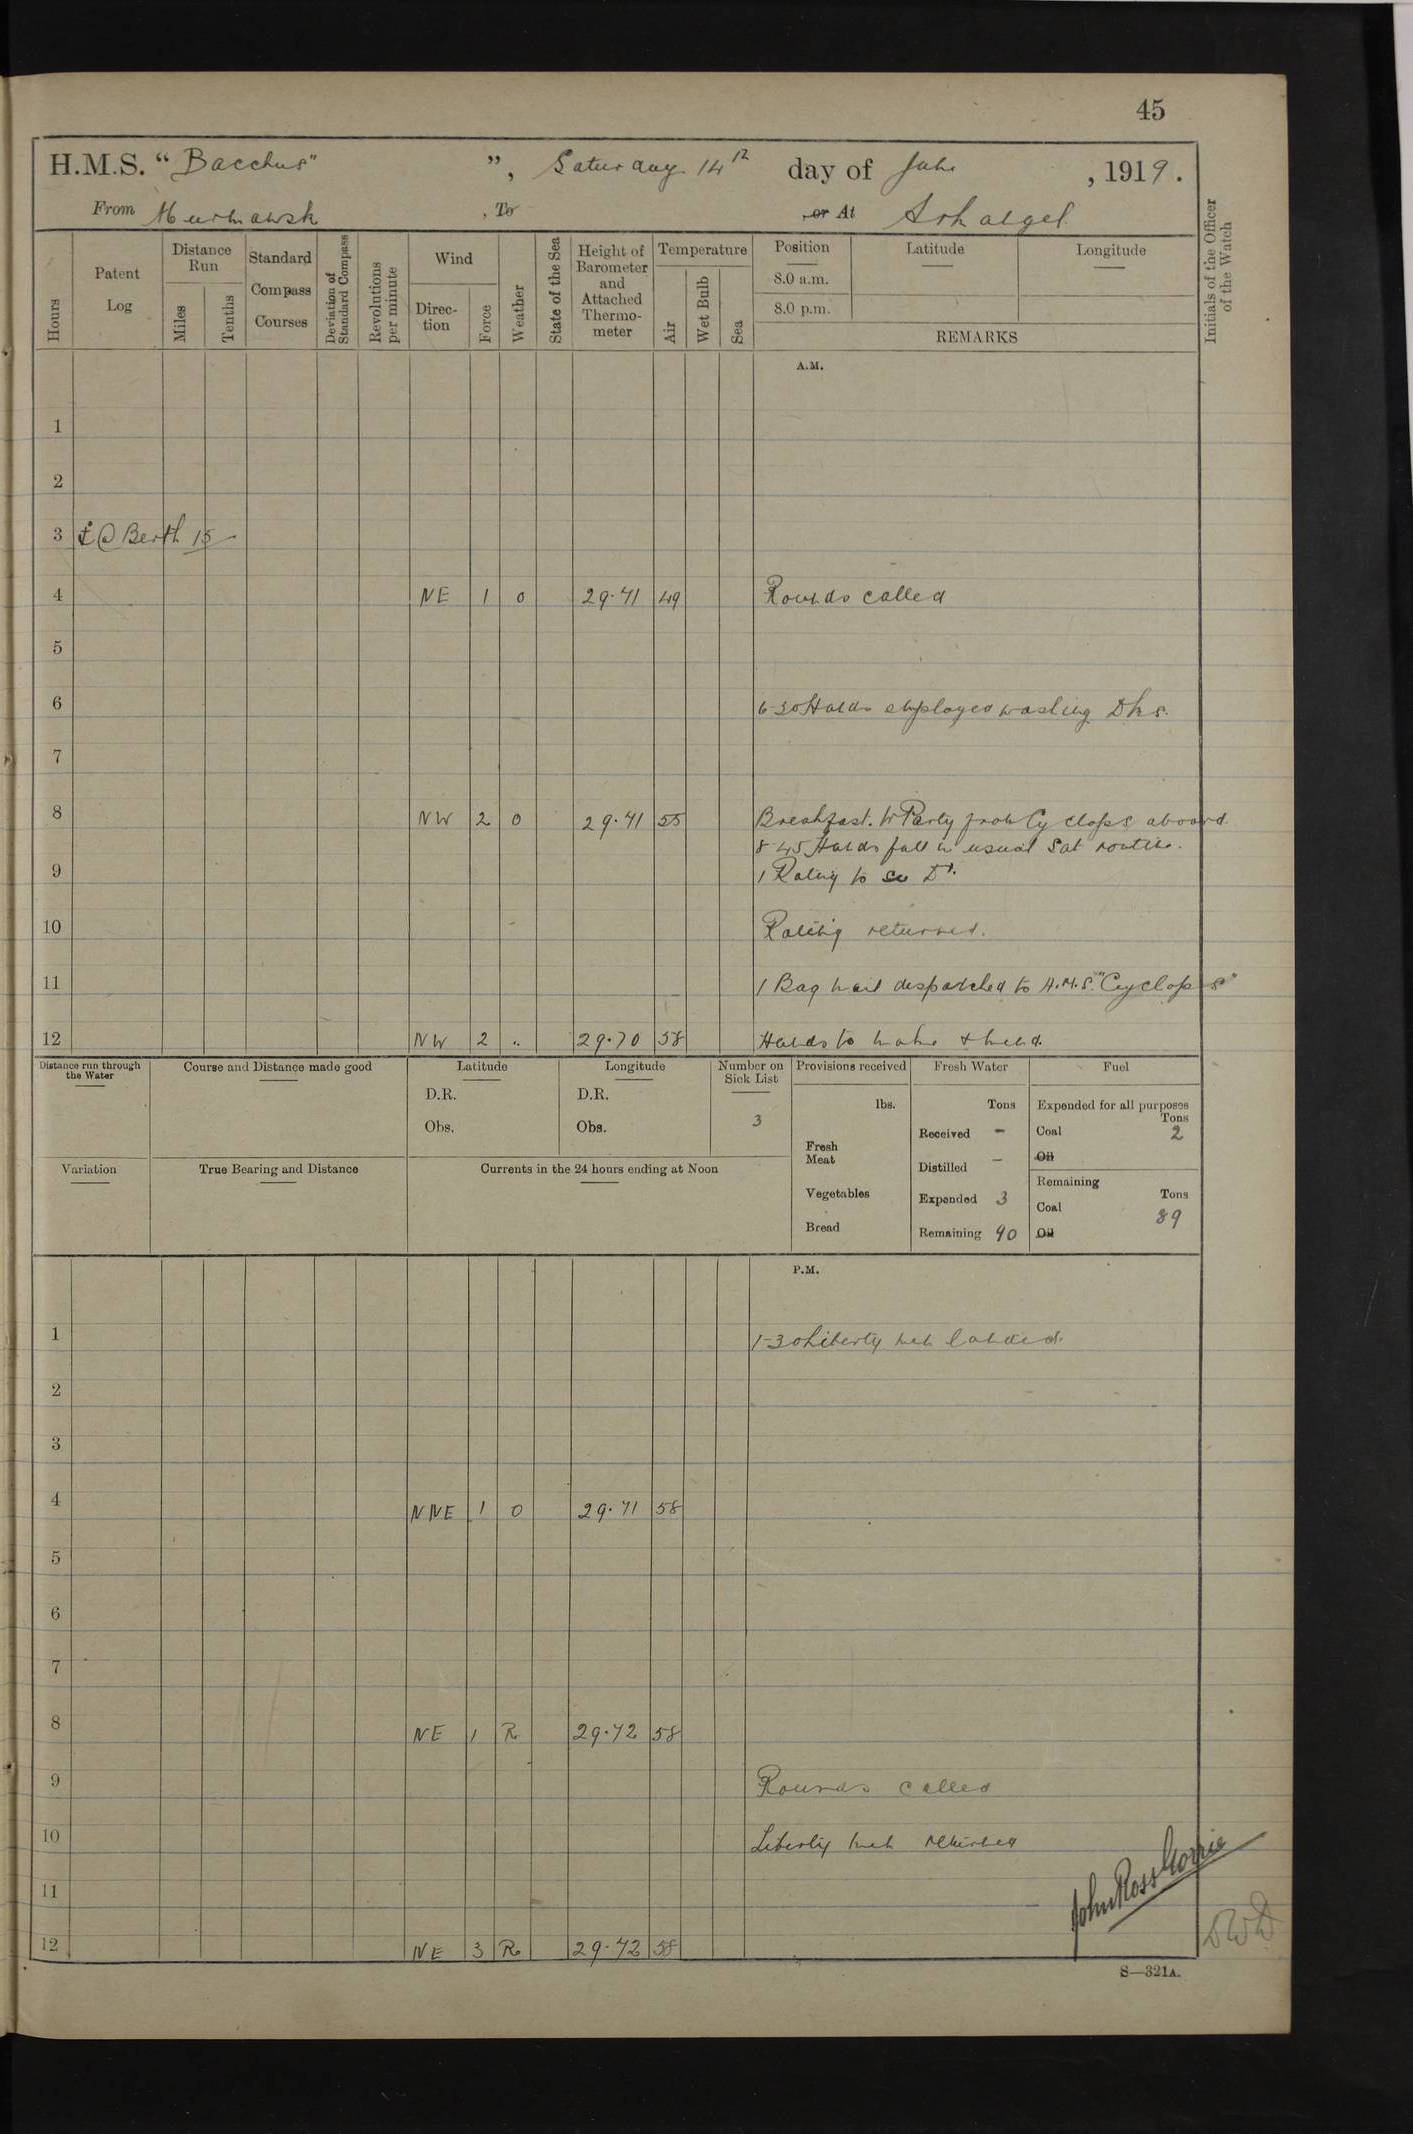 45
H.M.S. “ Bacchus" ”, Saturday 14th day of June , 1919 .
From Murmansk , To , or At Arhangel
Hours
Patent Log
Distance Run
Miles
Tenths
Standard Compass Courses
Deviation of Standard Compass
Revolutions per minute
Wind
Direc-tion
Force
Weather
State of the Sea
Height of Barometer and Attached Thermo-meter
Temperature
Air
Wet Bulb
Sea
Position
Latitude
Longitude
8.0 a.m.
8.0 p.m.
REMARKS
Initials of the Officer of the Watch
A.M.
1
2
3 @ Berth 15
4 NE 1 o 29.71 49 Rounds called
5
6 6-30 Hands employed washing Dks.
7
8 NW 2 o 29.71 55 Breakfast. W Party from Cyclops aboard
8 45 Hands fall in usual Sat routine.
9 1 Rating to Dr.
10 Rating returned.
11 1 Bag mail despatched to H.M.S. "Cyclops"
12 NW 2 .. 29.70 58 Hands to make & mend.
Distance run through the Water
Course and Distance made good
Latitude
D.R.
Obs.
Longitude
D.R.
Obs.
Number on Sick List
3
Provisions received
lbs.
Fresh Meat
Vegetables
Bread
Fresh Water
Tons
Received -
Distilled -
Expended 3
Remaining 90
Fuel
Expended for all purposes
Tons
Coal 2
Oil
Remaining
Tons
Coal 89
Oil
Variation
True Bearing and Distance
Currents in the 24 hours ending at Noon
P.M.
1 1-30 Liberty men landed.
2
3
4 NNE 1 o 29.71 58
5
6
7
8 NE 1 R 29.72 58
9 Rounds called
10 Liberty men returned
11
John Ross Gorrie
12 NE 3 R 29.72 58
S—321A.